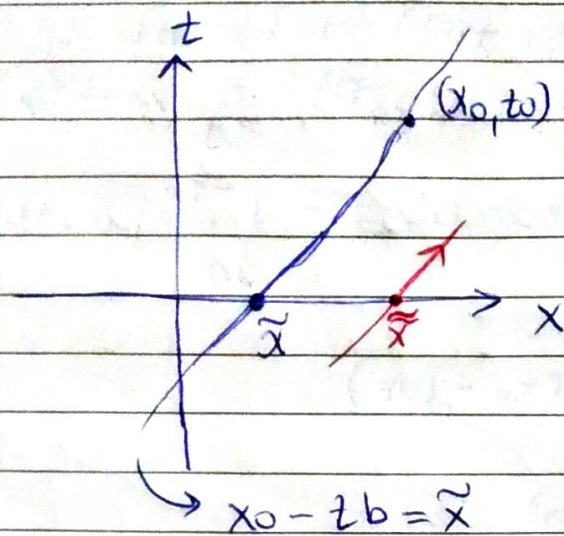 t
(x₀, t₀)
x̃
x̃̃
x
x₀ - tb = x̃